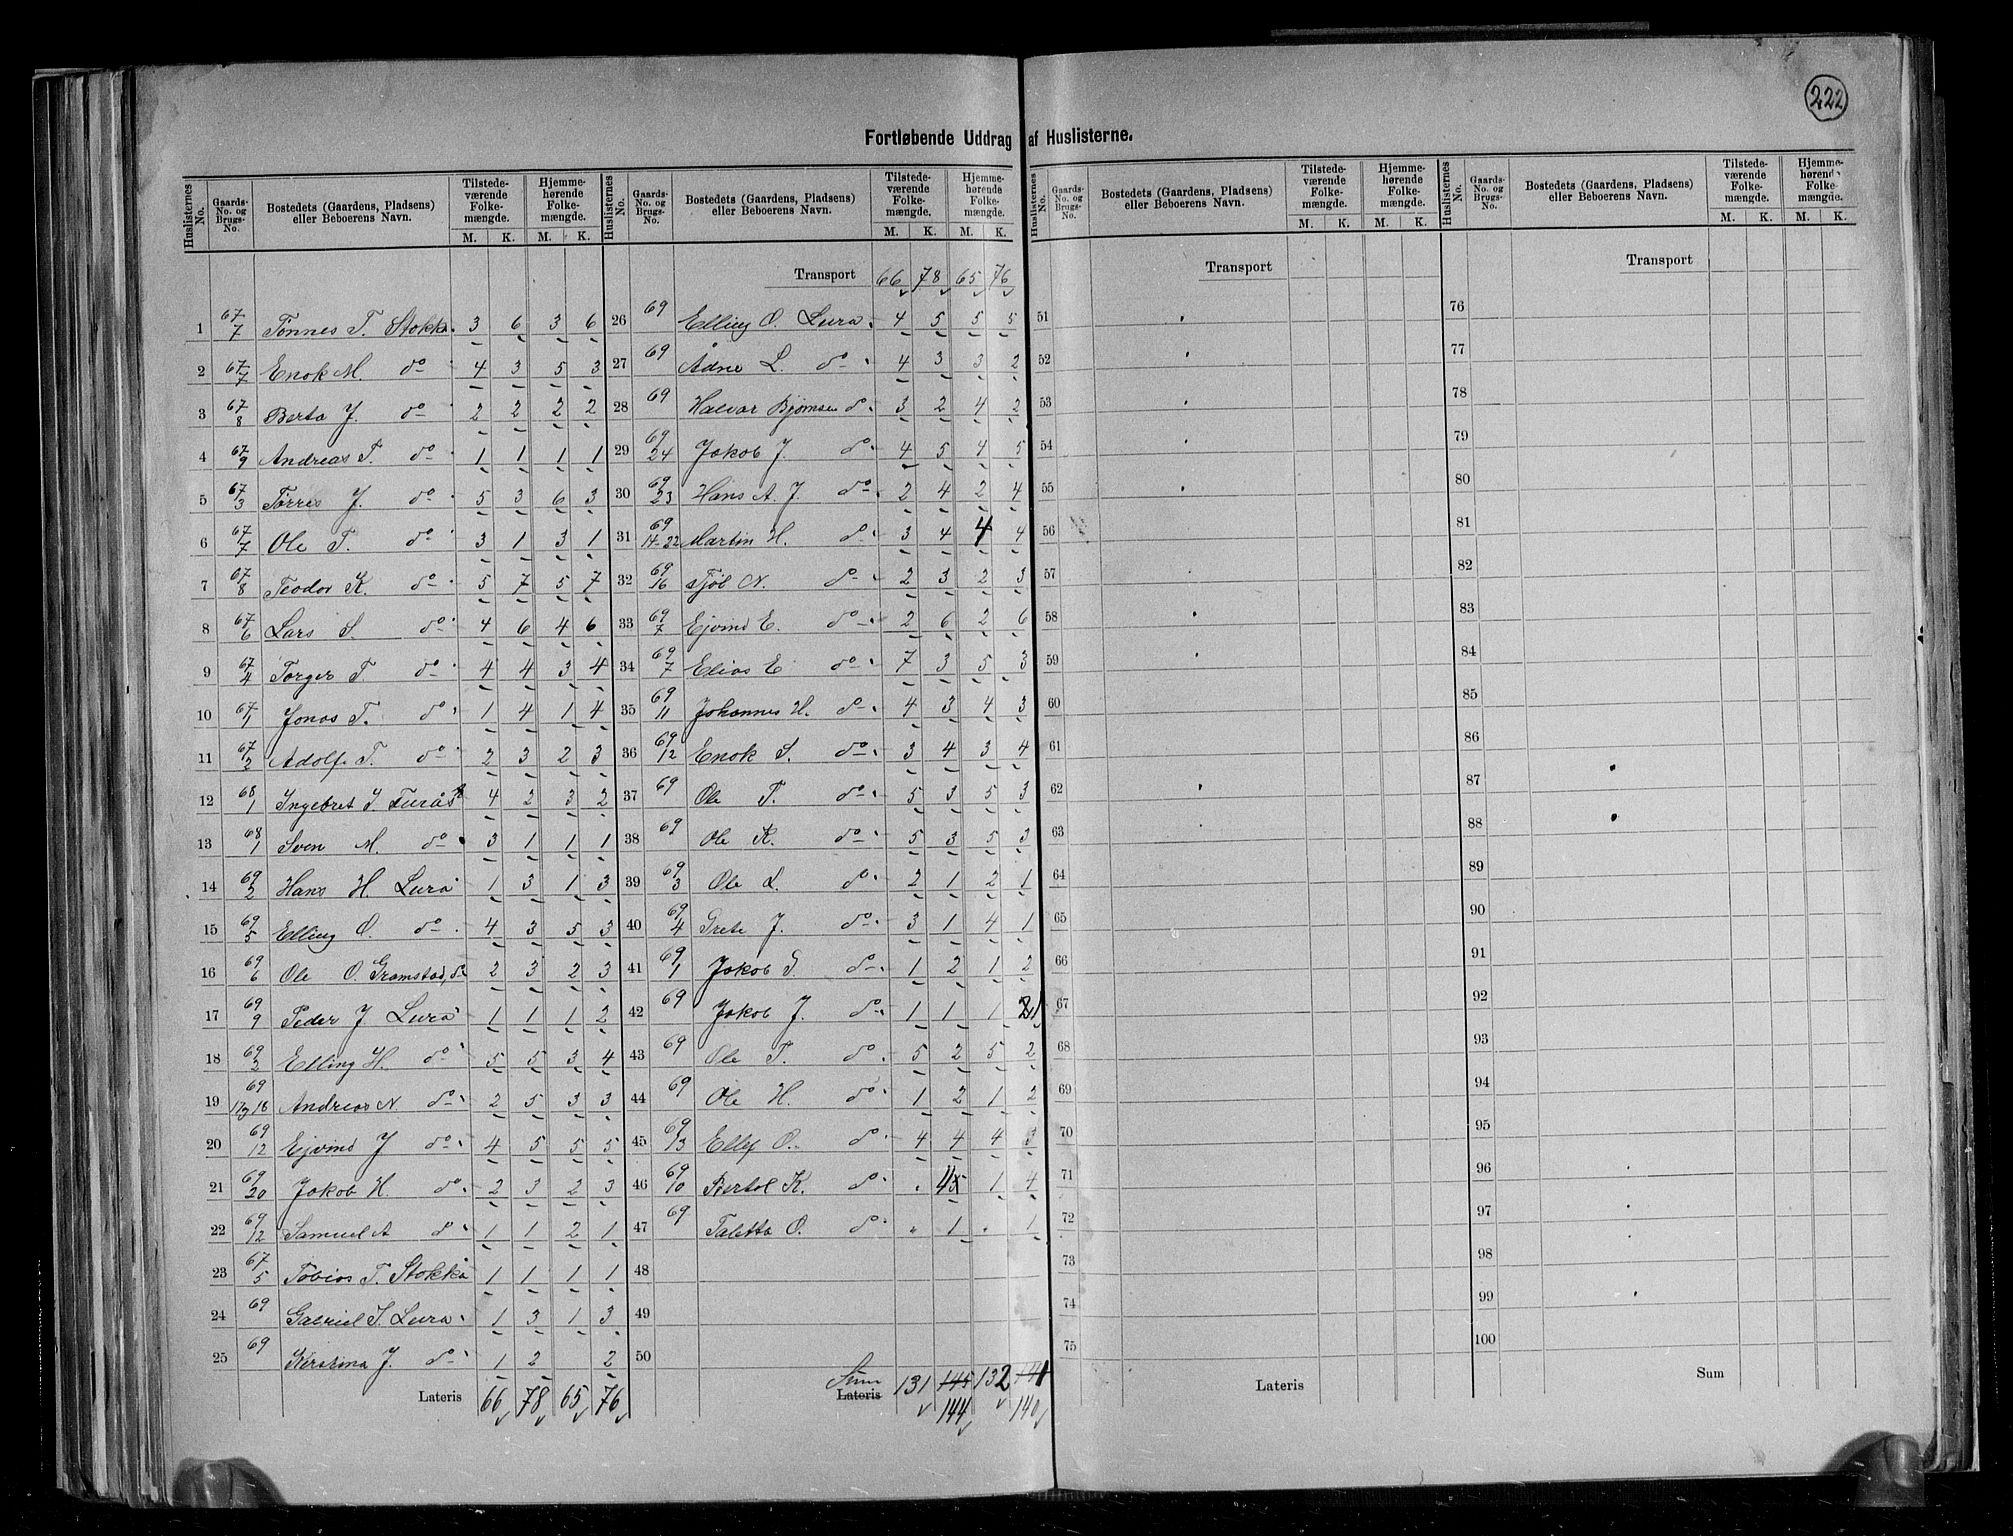 222
Fortløbende Uddrag af Huslisterne.
Huslisternes No. | Gaards-No. og Brugs-No. | Bostedets (Gaardens, Pladsens) eller Beboerens Navn. | Tilstede-værende Folke-mængde. M. K. | Hjemme-hørende Folke-mængde. M. K.
1 67/7 Tønnes T. Stokka 3 6 3 6
2 67/7 Enok M. do 4 3 5 3
3 67/8 Berta J. do 2 2 2 2
4 67/9 Andreas T. do 1 1 1 1
5 67/3 Tørres J. do 5 3 6 3
6 67/7 Ole T. do 3 1 3 1
7 67/8 Teodor K. do 5 7 5 7
8 67/6 Lars S. do 4 6 4 6
9 67/4 Torger T. do 4 4 3 4
10 67/1 Jonas T. do 1 4 1 4
11 67/2 Adolf T. do 2 3 2 3
12 68/1 Ingebret I 4 2 3 2
13 68/1 Sven M. do 3 1 1 1
14 69/2 Hans H. Lura 1 3 1 3
15 69/5 Elling O. do 4 3 5 3
16 69/6 Ole O. Gramstad, do 2 3 2 3
17 69/9 Peder J. Lura 1 1 1 2
18 69/2 Elling H. do 5 5 3 4
19 69 Andreas N do 2 5 3 3
20 69/12 Ejvind J do 4 5 5 5
21 69/20 Jakob H. do 2 3 2 3
22 69/12 Samuel A do 1 1 2 1
23 67/5 Tobias T. Stokka 1 1 1 1
24 69 Gabriel T. Lura 1 3 1 3
25 69 Kerstina J. do 1 2 2
Lateris 66 78 65 76
Huslisternes No. | Gaards-No. og Brugs-No. | Bostedets (Gaardens, Pladsens) eller Beboerens Navn. | Tilstede-værende Folke-mængde. M. K. | Hjemme-hørende Folke-mængde. M. K.
Transport 66 78 65 76
26 69 Elling O. Lura 4 5 5 5
27 69 Ådne L. do 4 3 3 2
28 69 Halvor Bjørnsen do 3 2 4 2
29 69/24 Jakob J. do 4 5 4 5
30 69/23 Hans A. J. do 2 4 2 4
31 69/14-22 Martin H. do 3 4 4 4
32 69/16 Tjøl N. do 2 3 2 3
33 69/7 Ejvind E. do 2 6 2 6
34 69/7 Elias E do 7 3 5 3
35 69/11 Johannes H. do 4 3 4 3
36 69/12 Enok S. do 3 4 3 4
37 69 Ole T. do 5 3 5 3
38 69 Ole K. do 5 3 5 3
39 69/3 Ole L. do 2 1 2 1
40 69/4 Grete J. do 3 1 4 1
41 69/1 Jakob S. do 1 2 1 2
42 69 Jakob J. do 1 1 1 1
43 69 Ole T. do 5 2 5 2
44 69 Ole H. do 1 2 1 2
45 69/13 Ellef O. do 4 4 4 3
46 69/10 Bertol K. do " 4 1 4
47 69 Taletta O. do " 1 " 1
48
49
50
Sum Lateris 131 145 132 141
144 140
Huslisternes No. | Gaards-No. og Brugs-No. | Bostedets (Gaardens, Pladsens) eller Beboerens Navn. | Tilstede-værende Folke-mængde. M. K. | Hjemme-hørende Folke-mængde. M. K.
Transport
51
52
53
54
55
56
57
58
59
60
61
62
63
64
65
66
67
68
69
70
71
72
73
74
75
Lateris
Huslisternes No. | Gaards-No. og Brugs-No. | Bostedets (Gaardens, Pladsens) eller Beboerens Navn. | Tilstede-værende Folke-mængde. M. K. | Hjemme-hørende Folke-mængde. M. K.
Transport
76
77
78
79
80
81
82
83
84
85
86
87
88
89
90
91
92
93
94
95
96
97
98
99
100
Sum